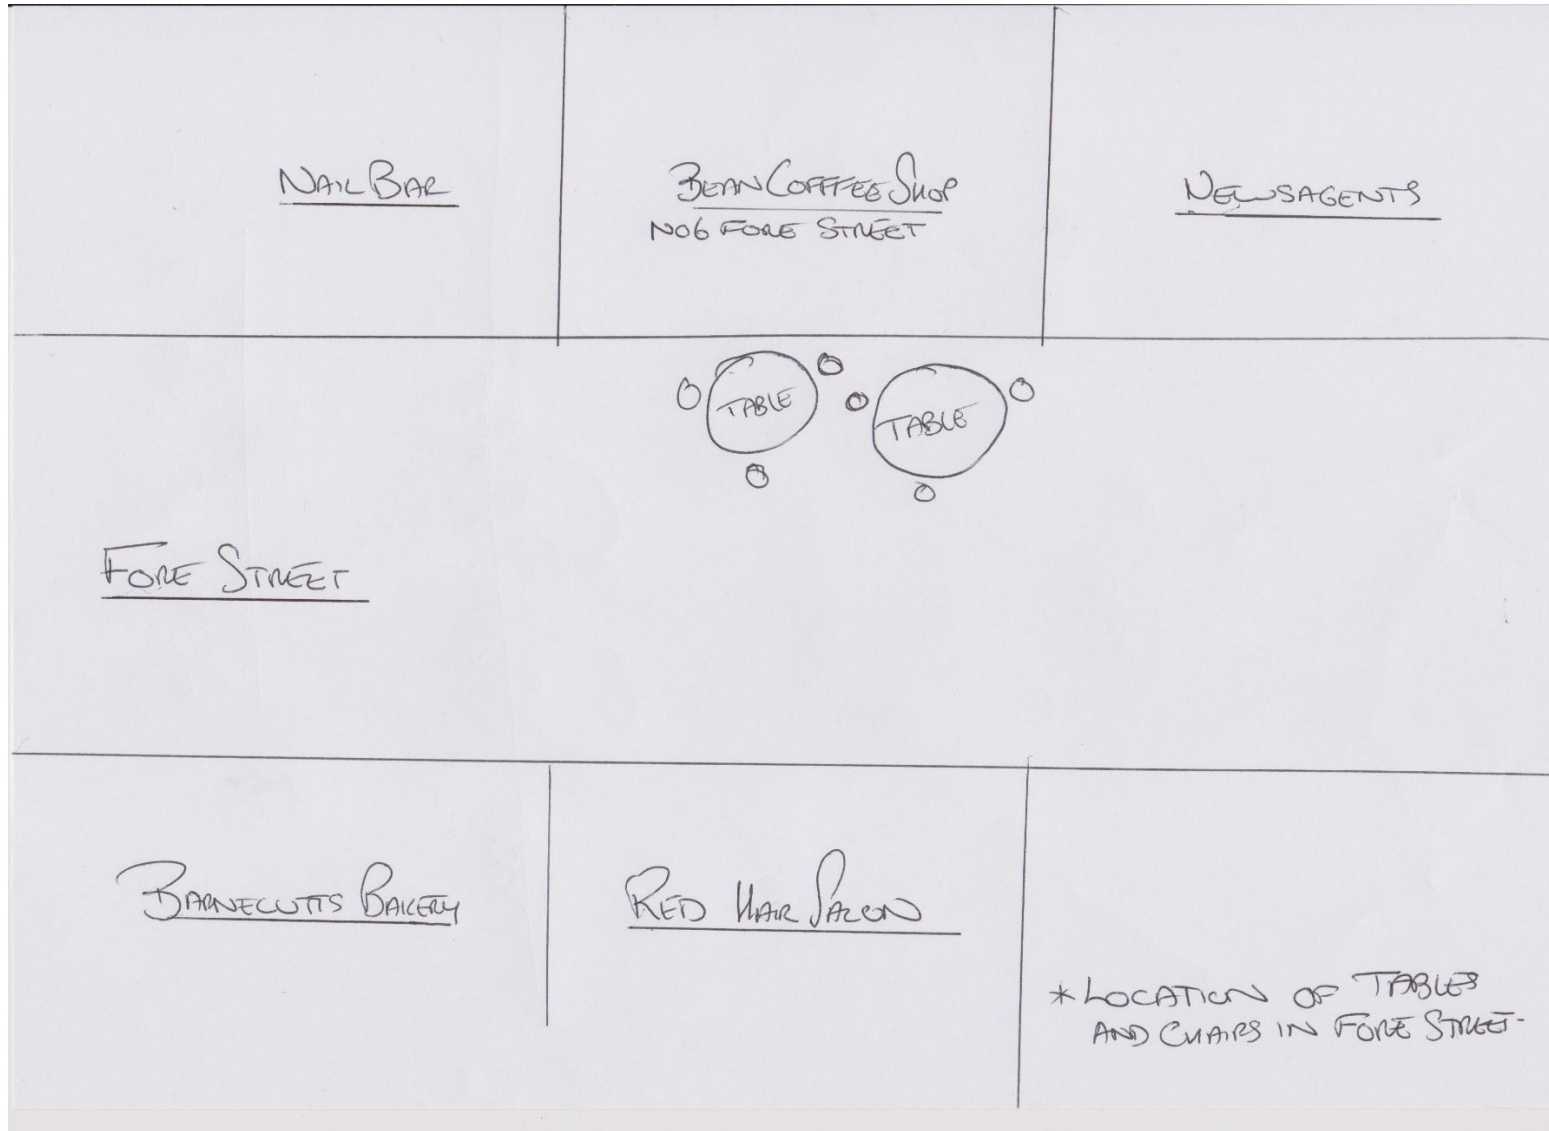 NAIL BAR
BEAN COFFFEE SHOP
NO6 FORE STREET
NEWSAGENTS
TABLE
TABLE
FORE STREET
BARNECUTTS BAKERY
RED HAIR SALON
* LOCATION OF TABLES
AND CHAIRS IN FORE STREET.